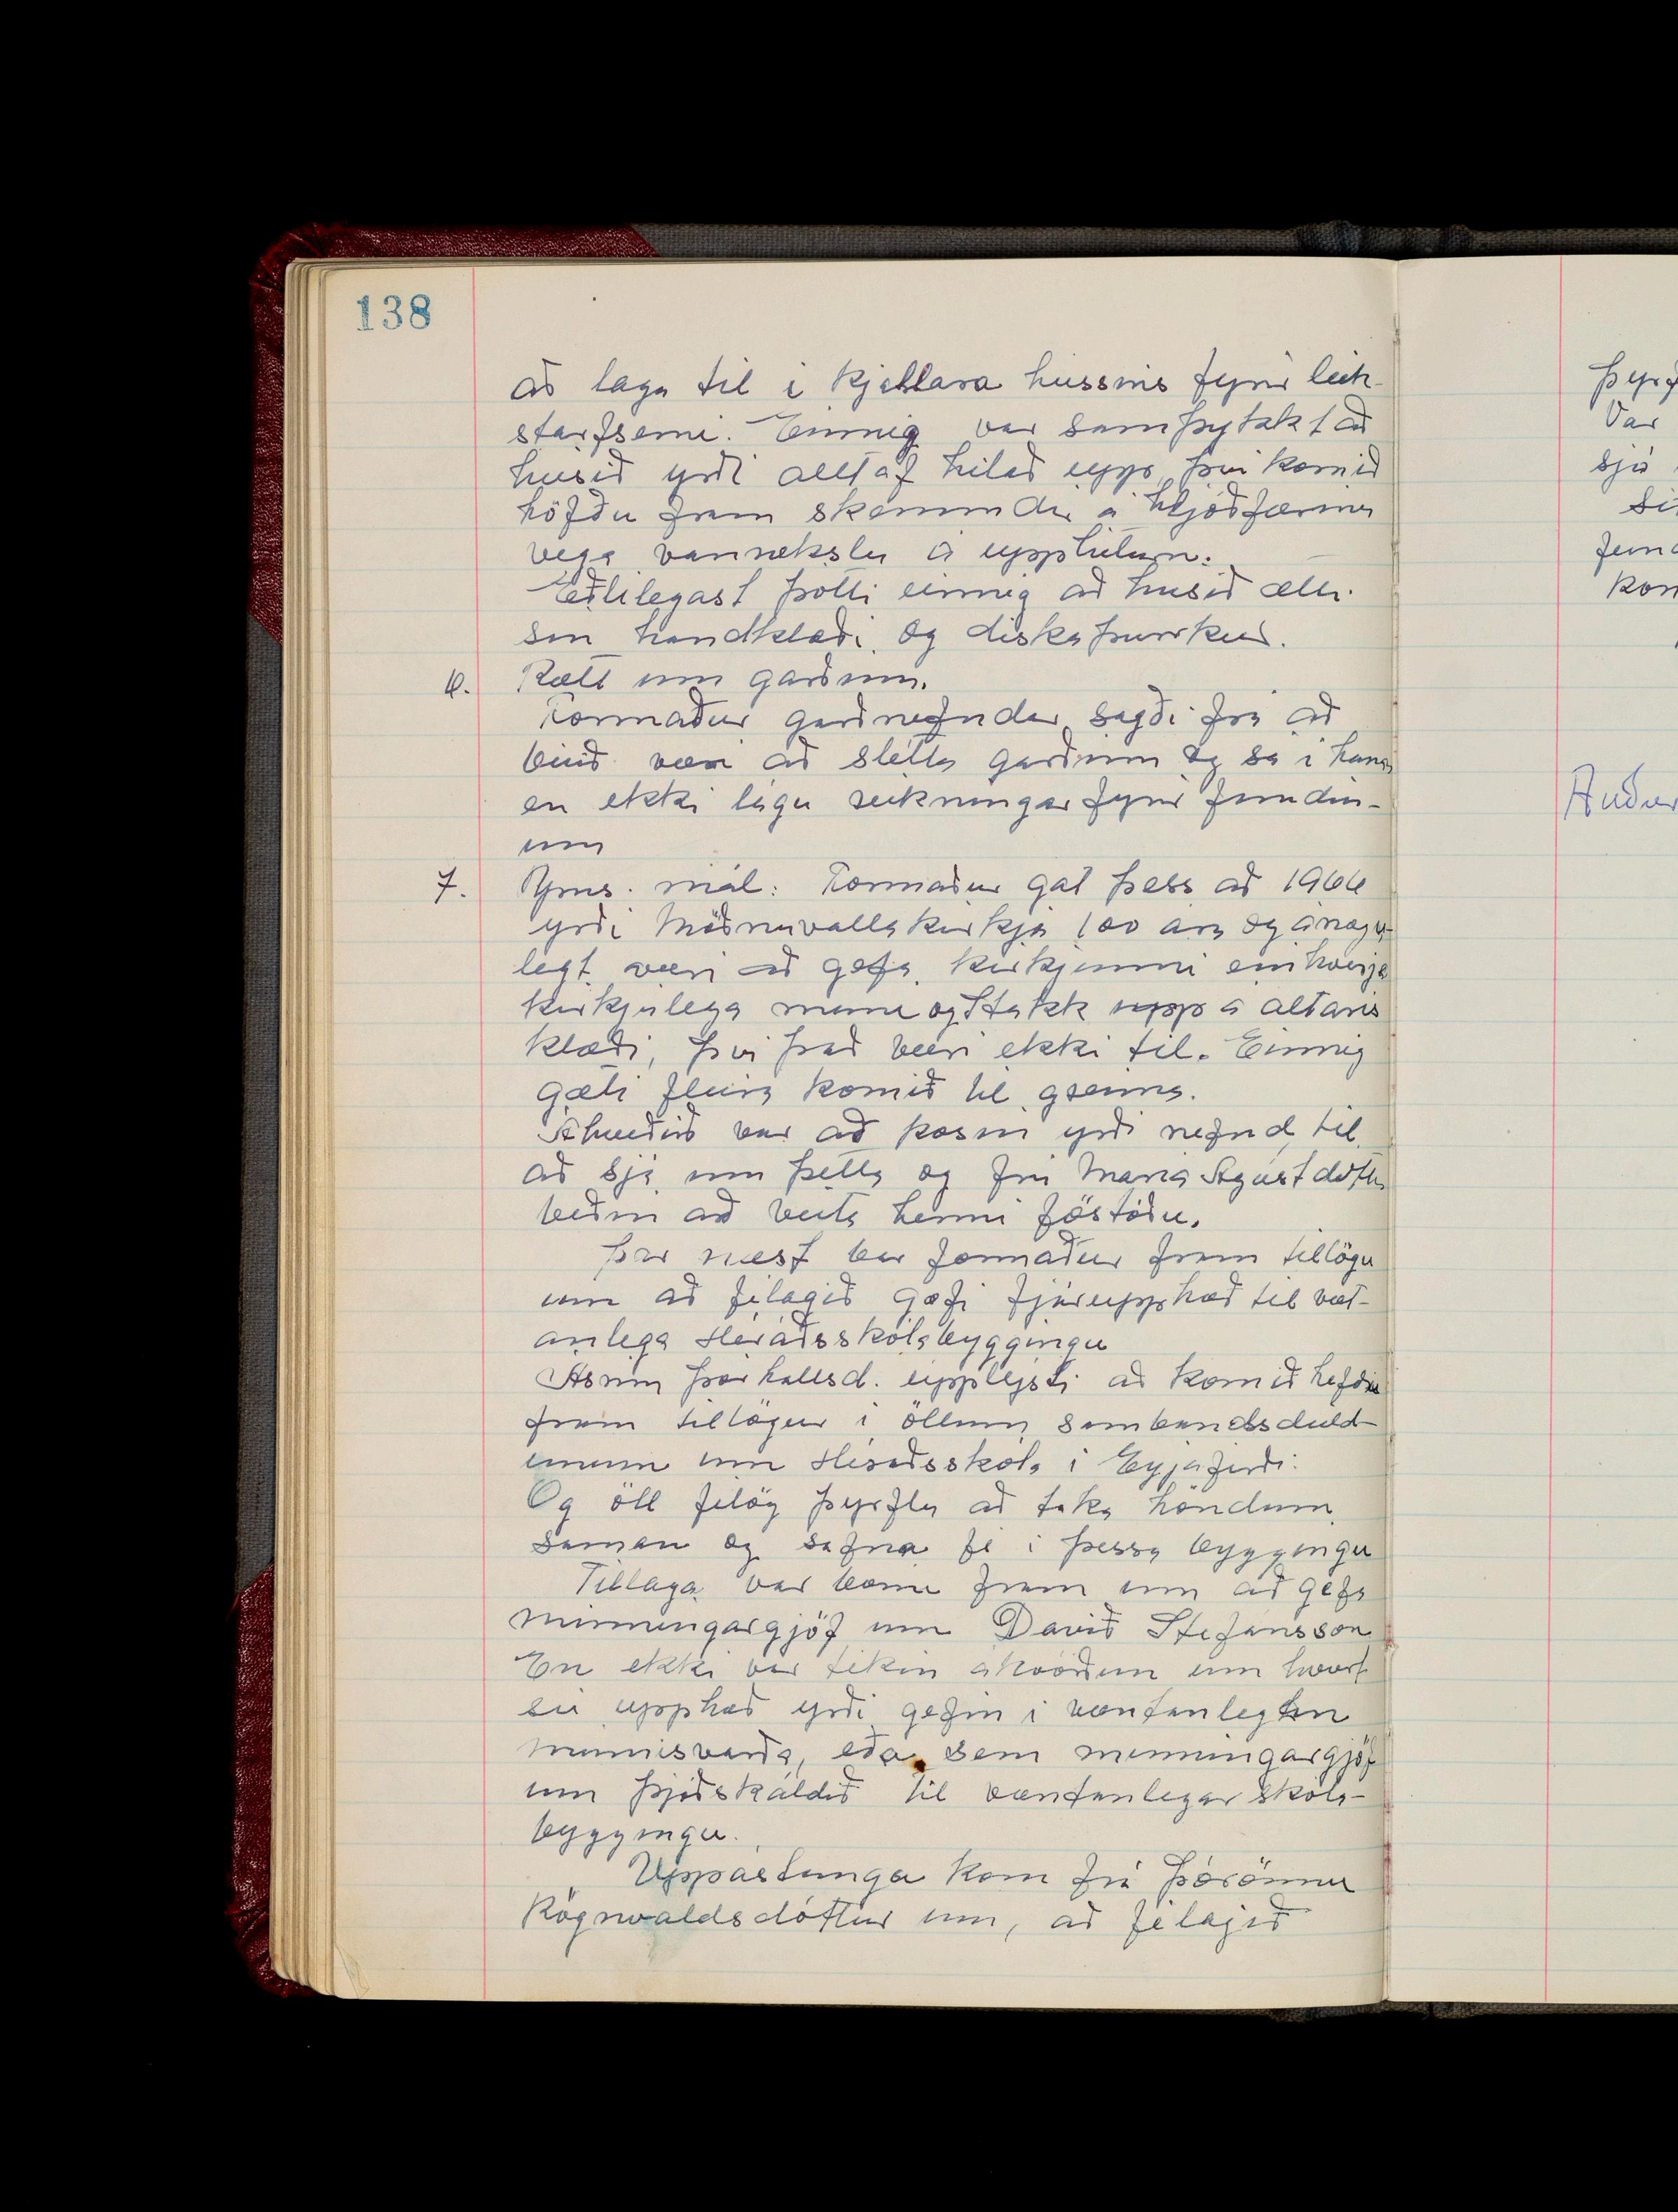 138
að laga til í kjallara hússins fyrir leik-
starfsemi. Einnig var samþykkt að
húsið yrði alltaf hitað upp, því komið
höfðu fram skemmdir á hljóðfærinu
vegna vanrækslu á upphitun.
Eðlilegast þótti einnig að húsið ætti
sín handklæði, og diskaþurrkur.
6. Rætt um garðinn.
Formaður garðnefndar sagði frá að
búið væri að slétta garðinn og sá í hann
en ekki lágu reikningar fyrir fundin-
um
7. Ýms. mál: Formaður gat þess að 1966
yrði Möðruvallakirkja 100 ára og ánægju-
legt væri að gefa kirkjunni einhverja
kirkjulega muni og stakk upp á altaris
klæði, því það væri ekki til. Einnig
gæti fleira komið til greina.
Ákveðið var að kosin yrði nefnd til
að sjá um þetta og frú María Ágústdóttir
beðin að veita henni forstöðu.
Þar næst bar formaður fram tillögu
um að félagið gæfi fjárupphæð til vænt-
anlega Héraðsskólabyggingu
Þórhallsd. upplýsti að komið hefðu
fram tillögur í öllum sambandsdeild-
unum um Héraðsskóla í Eyjafirði.
Og öll félög þyrftu að taka höndum
saman og safna fé í þessa byggingu
Tillaga var borin fram um að gefa
minningargjöf um Davíð Stefánsson
En ekki var tekin ákvörðun um hvort
sú upphæð yrði gefin í væntanlegan
minnisvarða, eða sem minningargjöf
um þjóðskáldið til væntanlegar skóla-
byggingu.
Uppástunga kom frá Þórönnu
Rögnvaldsdóttur um, að félagið
Þyrf
Var
sjá
kom
Auður